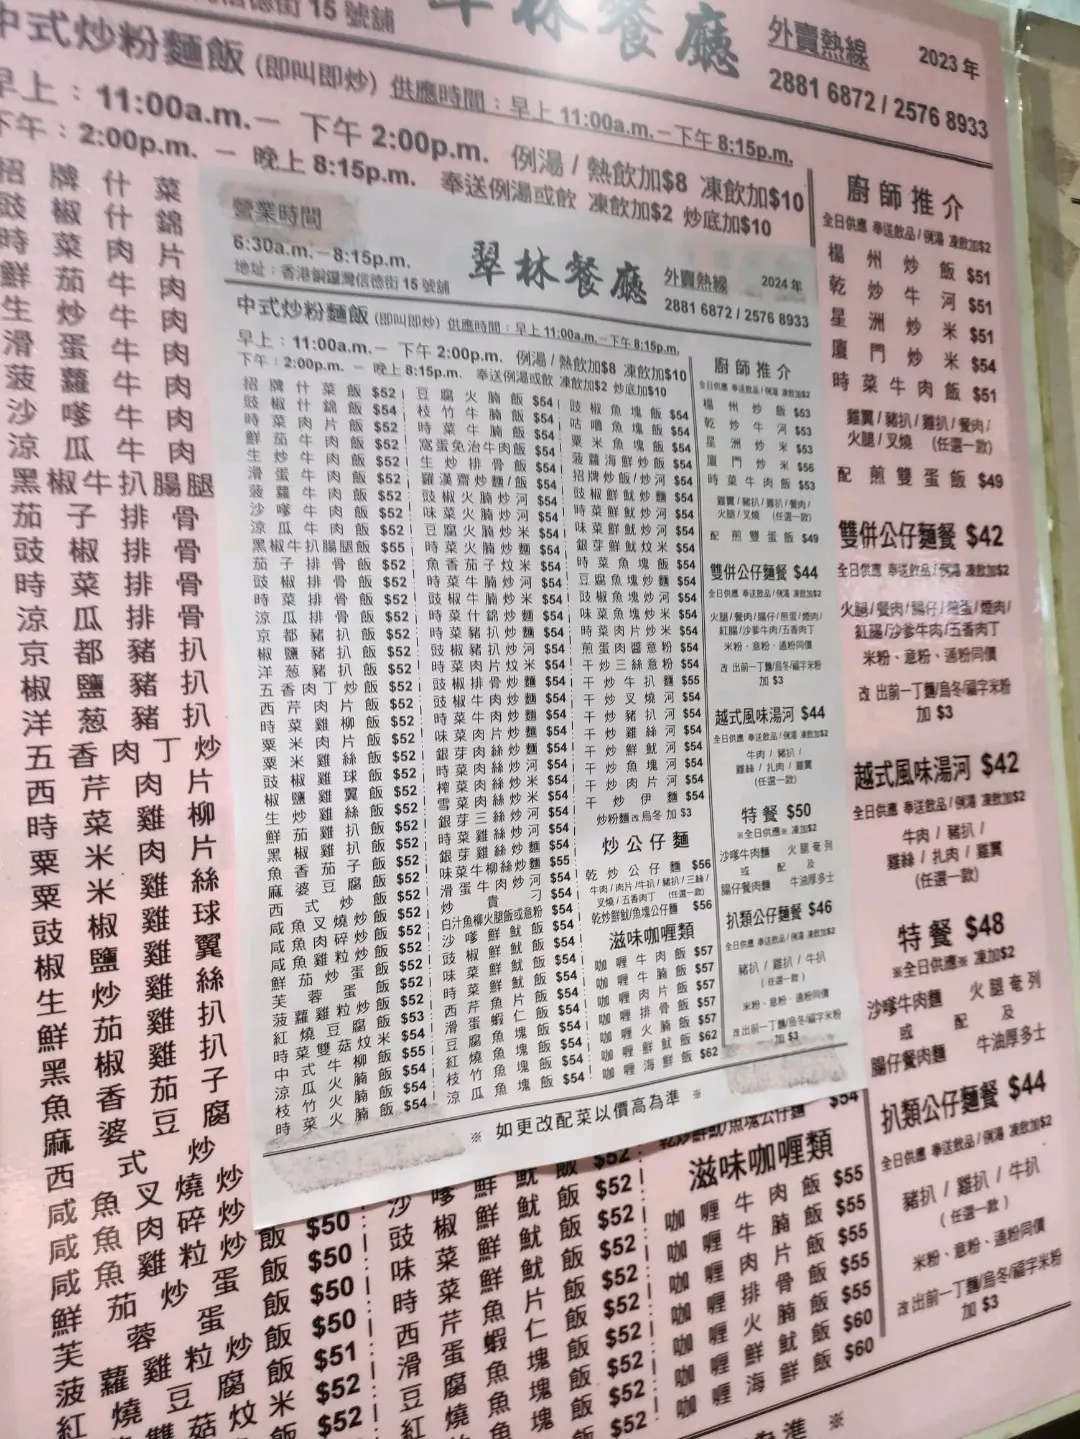 信德街 15 號舖
翠林餐廳
外賣熱線
2023 年
2881 6872 / 2576 8933
中式炒粉麵飯 (即叫即炒) 供應時間：早上 11:00a.m.－下午 8:15p.m.
早上：11:00a.m.－ 下午 2:00p.m. 例湯 / 熱飲加$8 凍飲加$10
下午：2:00p.m. － 晚上 8:15p.m. 奉送例湯或飲 凍飲加$2 炒底加$10
招牌什菜
豉椒什錦
時菜肉片
鮮茄牛肉
生炒牛肉
滑蛋牛肉
菠蘿牛肉
沙嗲牛肉
涼瓜牛肉
黑椒牛扒腸腿
茄子排骨
豉椒排骨
時菜排骨
涼瓜排骨
京都豬扒
椒鹽豬扒
洋葱豬扒
五香肉丁炒
西芹肉片
時菜雞柳
粟米肉片
粟米雞絲
豉椒雞球
椒鹽雞翼
生炒雞絲
鮮茄雞扒
黑椒雞扒
魚香茄子
麻婆豆腐
西式炒
咸魚叉燒炒
咸魚肉碎炒飯 $50
咸魚雞粒炒飯 $50
鮮茄炒蛋飯 $50
芙蓉蛋飯 $50
菠蘿雞粒炒飯 $51
紅燒豆腐飯 $52
雙菇炆米 $52
廚師推介
全日供應 奉送飲品 / 例湯 凍飲加$2
楊州炒飯 $51
乾炒牛河 $51
星洲炒米 $51
廈門炒米 $54
時菜牛肉飯 $51
雞翼 / 豬扒 / 雞扒 / 餐肉 /
火腿 / 叉燒 (任選一款)
配煎雙蛋飯 $49
雙併公仔麵餐 $42
全日供應 奉送飲品 / 例湯 凍飲加$2
火腿 / 餐肉 / 腸仔 / 煎蛋 / 煙肉 /
紅腸 / 沙爹牛肉 / 五香肉丁
米粉、意粉、通粉同價
改 出前一丁麵/烏冬/福字米粉
加 $3
越式風味湯河 $42
全日供應 奉送飲品 / 例湯 凍飲加$2
牛肉 / 豬扒 /
雞絲 / 扎肉 / 雞翼
(任選一款)
特餐 $48
※全日供應※ 凍加$2
沙嗲牛肉麵 火腿奄列
或 配 及
腸仔餐肉麵 牛油厚多士
扒類公仔麵餐 $44
全日供應 奉送飲品 / 例湯 凍飲加$2
豬扒 / 雞扒 / 牛扒
( 任選一款 )
米粉、意粉、通粉同價
改 出前一丁麵/烏冬/福字米粉
加 $3
營業時間
6:30a.m.－8:15p.m.
地址：香港銅鑼灣信德街 15 號舖
翠林餐廳
外賣熱線
2024 年
2881 6872 / 2576 8933
中式炒粉麵飯 (即叫即炒) 供應時間：早上 11:00a.m.－下午 8:15p.m.
早上：11:00a.m.－ 下午 2:00p.m. 例湯 / 熱飲加$8 凍飲加$10
下午：2:00p.m. － 晚上 8:15p.m. 奉送例湯或飲 凍飲加$2 炒底加$10
招牌什菜飯 $52
豉椒什錦飯 $54
時菜肉片飯 $52
鮮茄牛肉飯 $52
生炒牛肉飯 $52
滑蛋牛肉飯 $52
菠蘿牛肉飯 $52
沙嗲牛肉飯 $52
涼瓜牛肉飯 $52
黑椒牛扒腸腿飯 $55
茄子排骨飯 $52
豉椒排骨飯 $52
時菜排骨飯 $52
涼瓜排骨飯 $52
京都豬扒飯 $52
椒鹽豬扒飯 $52
洋葱豬扒飯 $52
五香肉丁炒飯 $52
西芹肉片飯 $52
時菜雞柳飯 $52
粟米肉片飯 $52
粟米雞絲飯 $52
豉椒雞球飯 $52
椒鹽雞翼飯 $52
生炒雞絲飯 $52
鮮茄雞扒飯 $52
黑椒雞扒飯 $52
魚香茄子飯 $52
麻婆豆腐飯 $52
西式炒飯 $52
咸魚叉燒炒飯 $52
咸魚肉碎炒飯 $52
咸魚雞粒炒飯 $52
鮮茄炒蛋飯 $52
芙蓉蛋飯 $52
菠蘿雞粒炒飯 $52
紅燒豆腐飯 $53
時菜雙菇炆米 $54
中式牛柳飯 $55
涼瓜火腩飯 $54
枝竹火腩飯 $54
時菜火腩飯 $54
豆腐火腩飯 $54
枝竹牛腩飯 $54
時菜牛腩飯 $54
窩蛋免治牛肉飯 $54
生炒排骨飯 $54
羅漢齋炒麵/飯 $54
豉椒火腩炒河 $54
味菜火腩炒河 $54
豆腐火腩炒米 $54
時菜火腩炒麵 $54
魚香茄子炆米 $54
時菜牛腩炒河 $54
豉椒牛腩炒米 $54
時菜什錦炒麵 $54
時菜豬扒炒麵 $54
豉椒豬扒炒河 $54
時菜肉片炆米 $54
豉椒排骨炒麵 $54
豉椒牛肉炒麵 $54
時菜牛肉炒麵 $54
味菜肉片炒麵 $54
銀芽肉絲炒麵 $54
時菜肉絲炒河 $54
榨菜肉絲炒米 $54
雪菜肉絲炒米 $54
銀芽三絲炒河 $54
時菜雞絲炒河 $54
銀芽雞絲炒麵 $54
味菜牛柳絲炒麵 $55
滑蛋牛肉炒河 $54
炒貴刁 $54
白汁魚柳火腿飯或意粉 $54
沙嗲鮮魷飯 $54
豉椒鮮魷飯 $54
味菜鮮魷飯 $54
時菜鮮魷飯 $54
西芹魚片飯 $54
滑蛋蝦仁飯 $54
豆腐魚塊飯 $54
紅燒魚塊飯 $54
枝竹魚塊飯 $54
涼瓜魚塊飯 $54
豉椒魚塊飯 $54
咕嚕魚塊飯 $54
粟米魚塊飯 $54
菠蘿海鮮炒飯 $54
招牌炒飯/炒河 $54
豉椒鮮魷炒麵 $54
時菜鮮魷炒河 $54
味菜鮮魷炒河 $54
銀芽鮮魷炆米 $54
時菜魚塊飯 $54
豆腐魚塊炒麵 $54
豉椒魚塊炒河 $54
味菜魚塊炒米 $54
時菜肉片炒米 $54
煎蛋肉醬意粉 $54
干炒三絲意粉 $54
干炒牛扒麵 $55
干炒叉燒河 $54
干炒豬扒河 $54
干炒雞絲河 $54
干炒鮮魷河 $54
干炒魚塊河 $54
干炒肉片河 $54
干炒伊麵 $54
炒粉麵改烏冬 加 $3
炒公仔麵
乾炒公仔麵 $56
牛肉 / 肉片 / 牛扒 / 豬扒 / 三絲 /
叉燒 / 五香肉丁 (任選一款)
乾炒鮮魷/魚塊公仔麵 $56
滋味咖喱類
咖喱牛肉飯 $57
咖喱牛腩飯 $57
咖喱肉片飯 $57
咖喱排骨飯 $57
咖喱火腩飯 $57
咖喱鮮魷飯 $62
咖喱海鮮飯 $62
廚師推介
全日供應 奉送飲品 / 例湯 凍飲加$2
楊州炒飯 $53
乾炒牛河 $53
星洲炒米 $53
廈門炒米 $56
時菜牛肉飯 $53
雞翼 / 豬扒 / 雞扒 / 餐肉 /
火腿 / 叉燒 (任選一款)
配煎雙蛋飯 $49
雙併公仔麵餐 $44
全日供應 奉送飲品 / 例湯 凍飲加$2
火腿 / 餐肉 / 腸仔 / 煎蛋 / 煙肉 /
紅腸 / 沙爹牛肉 / 五香肉丁
米粉、意粉、通粉同價
改 出前一丁麵/烏冬/福字米粉
加 $3
越式風味湯河 $44
全日供應 奉送飲品 / 例湯 凍飲加$2
牛肉 / 豬扒 /
雞絲 / 扎肉 / 雞翼
(任選一款)
特餐 $50
※全日供應※ 凍加$2
沙嗲牛肉麵 火腿奄列
或 配 及
腸仔餐肉麵 牛油厚多士
扒類公仔麵餐 $46
全日供應 奉送飲品 / 例湯 凍飲加$2
豬扒 / 雞扒 / 牛扒
( 任選一款 )
米粉、意粉、通粉同價
改 出前一丁麵/烏冬/福字米粉
加 $3
※ 如更改配菜以價高為準 ※
飯 $52
沙嗲鮮魷飯 $52
豉椒鮮魷飯 $52
味菜鮮魷飯 $52
時菜鮮魷飯 $52
西芹魚片飯 $52
滑蛋蝦仁飯 $52
豆腐魚塊飯 $52
燒魚塊飯 $52
魚塊飯 $52
乾炒鮮魷/魚塊公仔麵 $54
滋味咖喱類
咖喱牛肉飯 $55
咖喱牛腩飯 $55
咖喱肉片飯 $55
咖喱排骨飯 $55
咖喱火腩飯 $55
咖喱鮮魷飯 $60
咖喱海鮮飯 $60
為準 ※